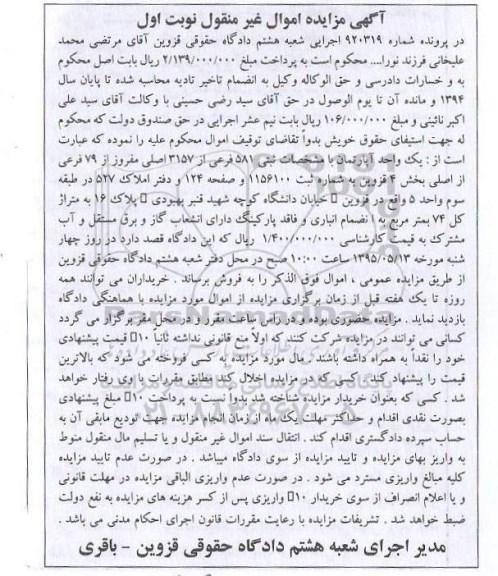 آگهی مزایده اموال غیر منقول نوبت اول
در پرونده شماره ۹۲۰۳۱۹ اجرایی شعبه هشتم دادگاه حقوقی قزوین آقای مرتضی محمد
علیخانی فرزند نورا.... محکوم است به پرداخت مبلغ ۲/۱۳۹/۰۰۰/۰۰۰ ریال بابت اصل محکوم
به و خسارات دادرسی و حق الوکاله وکیل به انضمام تاخیر تادیه محاسبه شده تا پایان سال
۱۳۹۴ و مانده آن تا یوم الوصول در حق آقای سید رضی حسینی با وکالت آقای سید علی
اکبر نائینی و مبلغ ۱۰۶/۰۰۰/۰۰۰ ریال بابت نیم عشر اجرایی در حق صندوق دولت که محکوم
له جهت استیفای حقوق خویش بدواً تقاضای توقیف اموال محکوم علیه را نموده که عبارت
است از : یک واحد آپارتمان با مشخصات ثبتی ۵۸۱ فرعی از ۳۱۵۷ اصلی مفروز از ۷۹ فرعی
از اصلی بخش ۴ قزوین به شماره ثبت ۱۱۵۶۱۰۰ و صفحه ۱۲۴ و دفتر املاک ۵۲۷ در طبقه
سوم واحد ۵ واقع در قزوین خیابان دانشگاه کوچه شهید قنبر بهبودی پلاک ۱۶ به متراژ
کل ۷۴ بمتر مربع به انضمام انباری و فاقد پارکینگ دارای انشعاب گاز و برق مستقل و آب
مشترک به قیمت کارشناسی ۱/۴۰۰/۰۰۰/۰۰۰ ریال که این دادگاه قصد دارد در روز چهار
شنبه مورخه ۱۳۹۵/۰۵/۱۳ ساعت ۱۰:۰۰ صبح در محل دفتر شعبه هشتم دادگاه حقوقی قزوین
از طریق مزایده عمومی ، اموال فوق الذکر را به فروش برساند . خریداران می توانند همه
روزه تا یک هفته قبل از زمان برگزاری مزایده از اموال مورد مزایده با هماهنگی دادگاه
بازدید نماید . مزایده حضوری بوده و در راس ساعت مقرر و در محل مقرر برگزار می گردد
کسانی می توانند در مزایده شرکت کنند که اولاً منع قانونی نداشته ثانیاً ۱۰ قیمت پیشنهادی
خود را نقداً به همراه داشته باشند . مال مورد مزایده به کسی فروخته می شود که بالاترین
قیمت را پیشنهاد کند . کسی که در مزایده اخلال کند مطابق مقررات با وی رفتار خواهد
شد . کسی که بعنوان خریدار مزایده شناخته شد بدواً نسبت به پرداخت ۱۰ مبلغ پیشنهادی
بصورت نقدی اقدام و حداکثر مهلت یک ماه از زمان انجام مزایده جهت تودیع مابقی آن به
حساب سپرده دادگستری اقدام کند . انتقال سند اموال غیر منقول و یا تسلیم مال منقول منوط
به واریز بهای مزایده و تایید مزایده از سوی دادگاه میباشد . در صورت عدم تایید مزایده
کلیه مبالغ واریزی مسترد می شود . در صورت عدم واریزی الباقی مزایده در مهلت قانونی
و یا اعلام انصراف از سوی خریدار ۱۰ واریزی پس از کسر هزینه های مزایده به نفع دولت
ضبط خواهد شد . تشریفات مزایده با رعایت مقررات قانون اجرای احکام مدنی می باشد .
مدیر اجرای شعبه هشتم دادگاه حقوقی قزوین - باقری